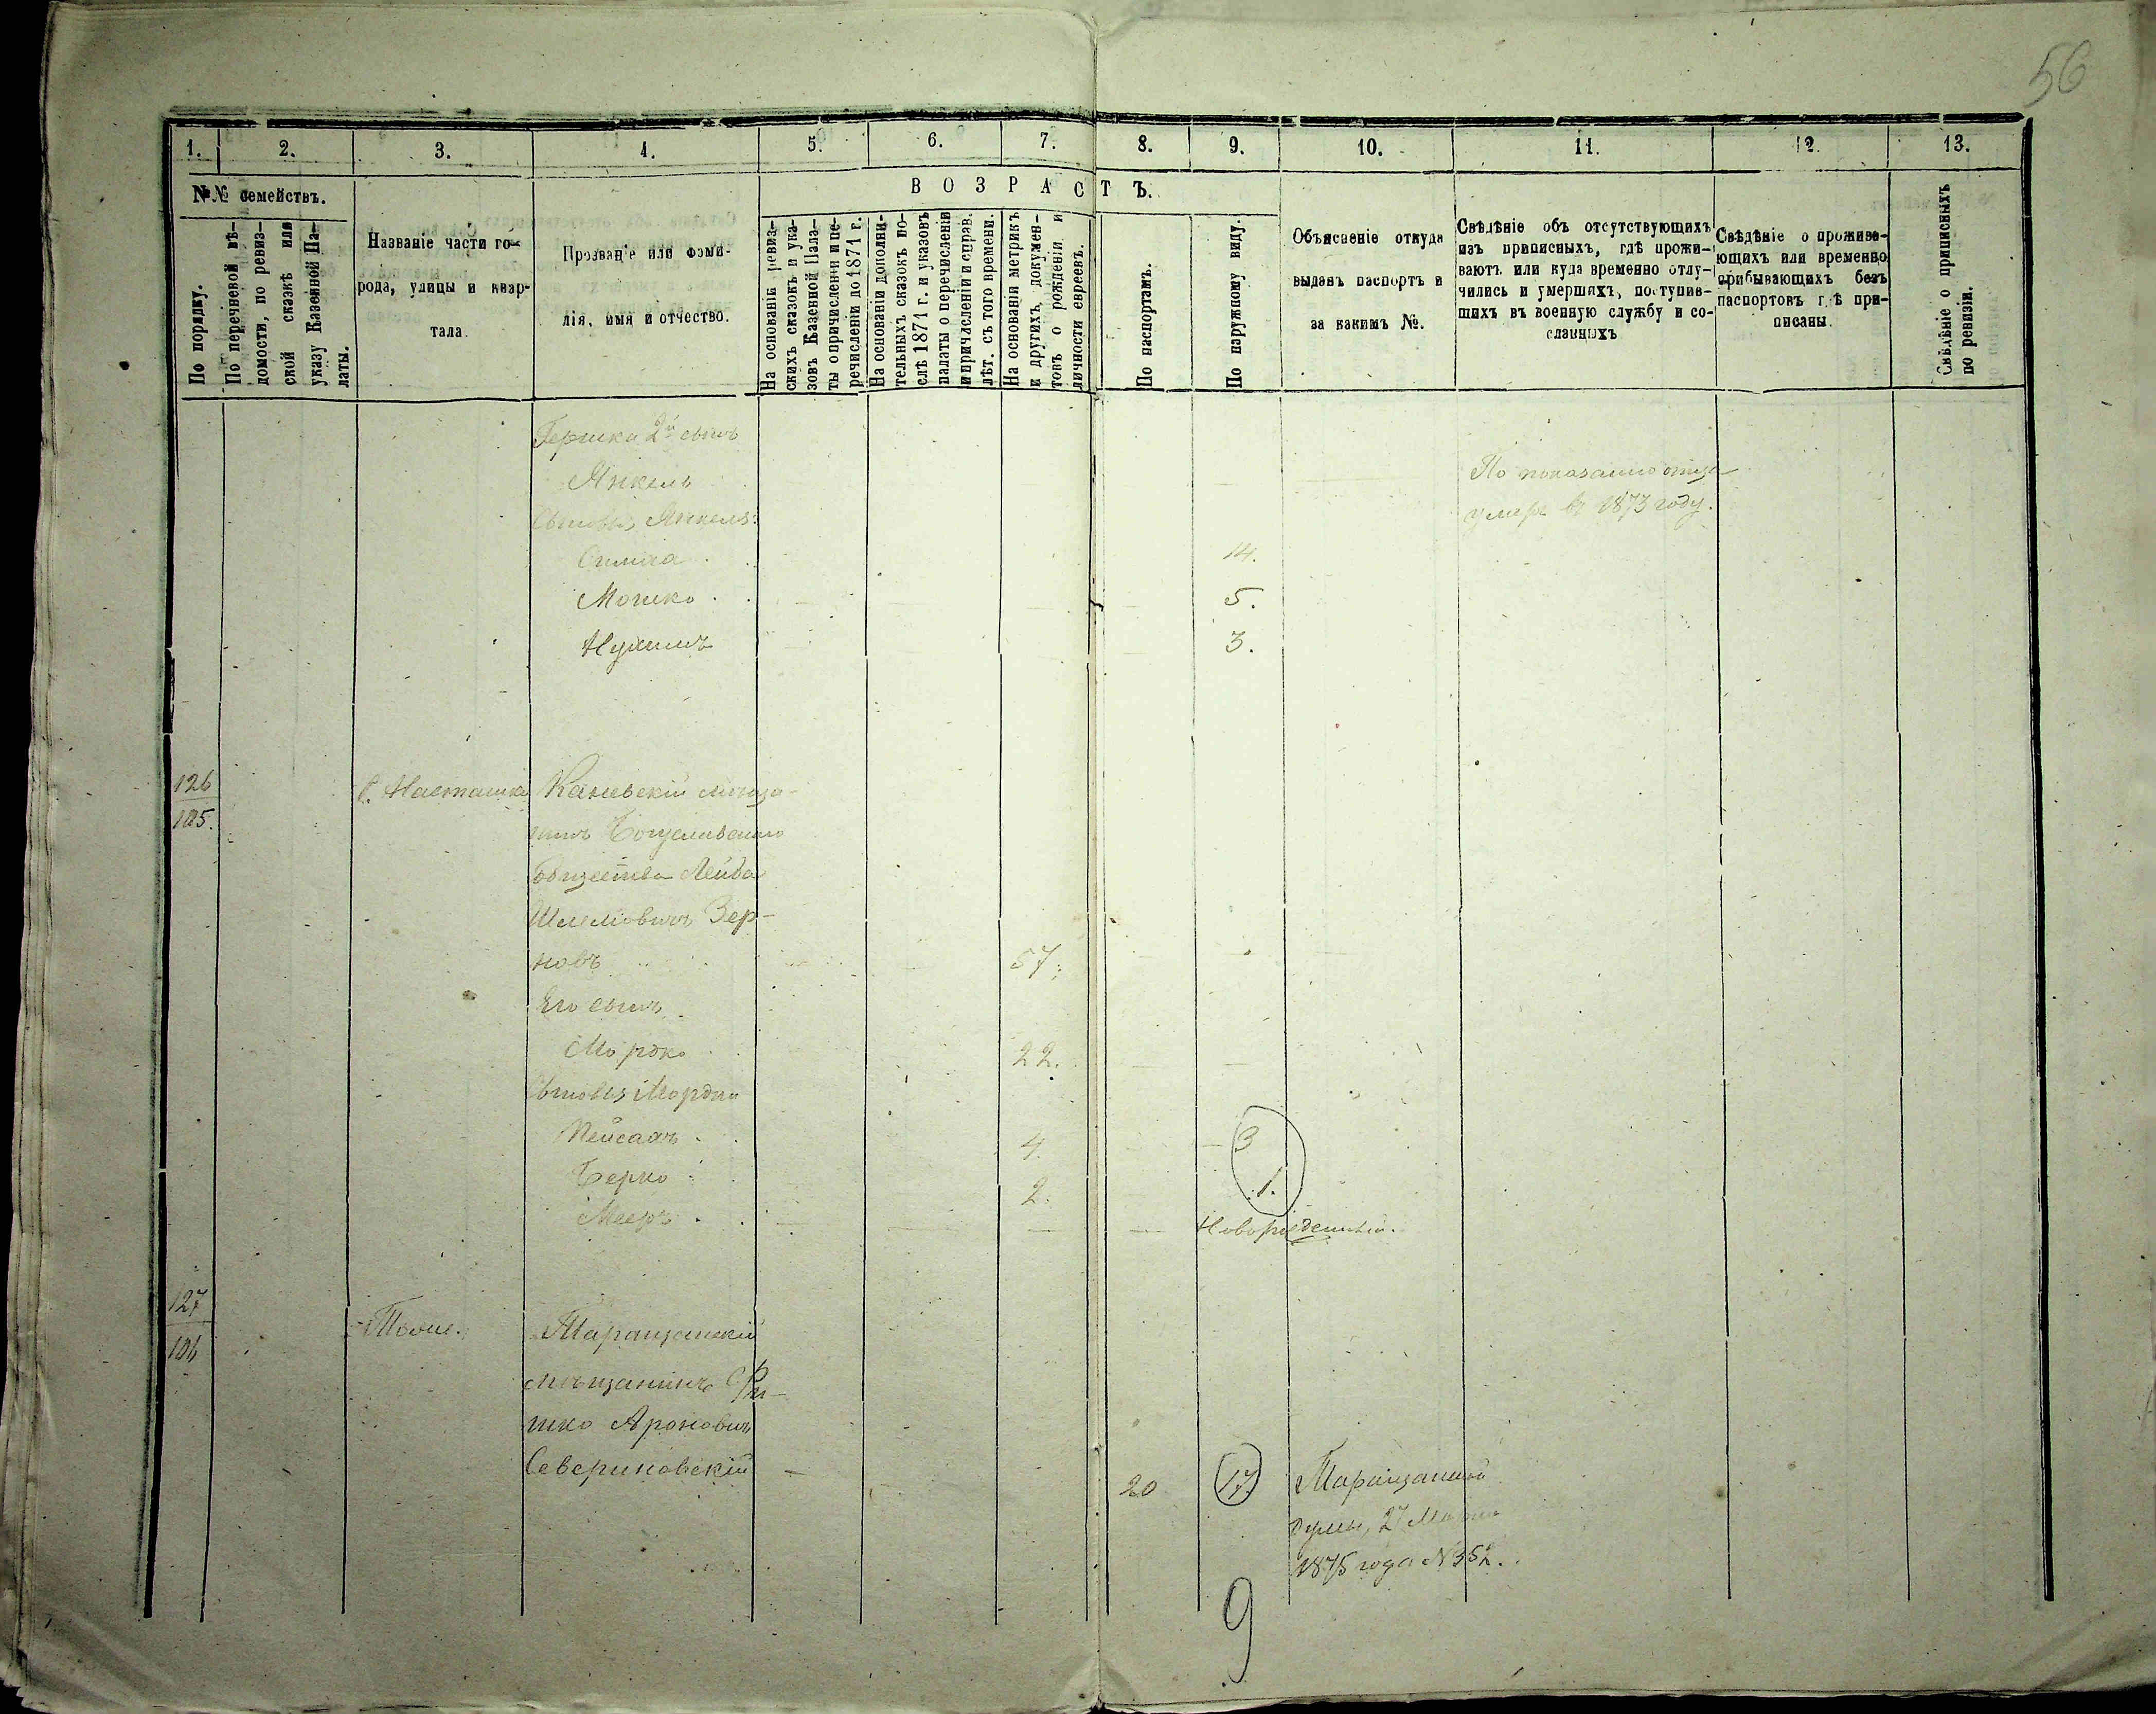 56
1. 2. 3. 4. 5. 6. 7. 8. 9. 10. 11. 12. 13.
№№ семействъ.
По порядку.
По перечневой вѣ-
домости, по ревиз-
ской сказкѣ или
указу Казенной Па-
латы.
Названіе части го-
рода, улицы и квар-
тала.
Прозваніе или фами-
лія, имя и отчество.
ВОЗРАСТЪ.
На основаніи ревиз-
скихъ сказокъ и ука-
зовъ Казенной Пала-
ты о причисленіи и пе-
речисленіи до 1871 г.
На основаніи дополни-
тельныхъ сказокъ по-
слѣ 1871 г. и указовъ
палаты о перечисленіи
и причисленіи и справ.
лѣт. съ того времени.
На основаніи метрикъ
и другихъ докумен-
товъ о рожденіи и
личности евреевъ.
По паспортамъ.
По наружному виду.
Объясненіе откуда
выданъ паспортъ и
за какимъ №.
Свѣдѣніе объ отсутствующихъ
изъ приписныхъ, гдѣ прожи-
ваютъ или куда временно отлу-
чились и умершихъ, поступив-
шихъ въ военную службу и со-
сланныхъ
Свѣдѣніе о прожива-
ющихъ или временно
прибывающихъ безъ
паспортовъ гдѣ при-
писаны.
Свѣдѣніе о приписныхъ
по ревизіи.
Гершка 2й сынъ
Янкель
По показанію отца
умеръ въ 1873 году.
Сыновья Янкеля:
Симха 14.
Мошко 5.
Нухимъ 3.
126
105.
С. Насташка
Каневскій мѣща-
нинъ Богуславскаго
общества Лейба
Шлемовичъ Зер-
новъ 57.
Его сынъ
Мордко 22.
Сыновья Мордки
Пейсахъ 4. 3
Берко 2. 1.
Мееръ Новорожденный.
127
106
Тоже.
Таращанскій
мѣщанинъ
шко Ароновичъ
Севериновскій 20 17.
Таращанской
Думы, 27 Марта
1875 года №352.
9